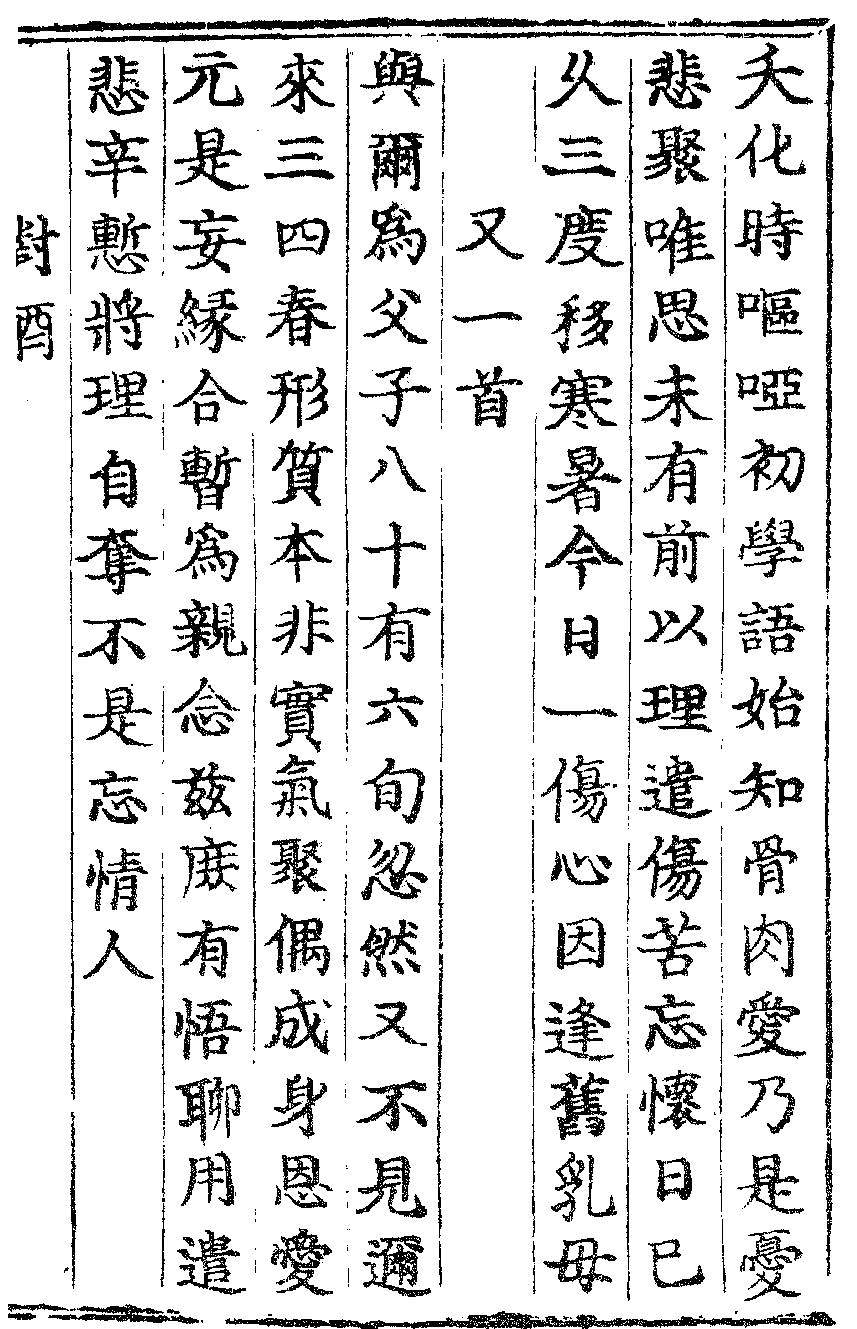 夭化時嘔啞初學語始知骨肉愛乃是憂
悲聚唯思未有前以理遣傷苦忘懷日已
乆三度移寒暑今日一傷心因逢舊乳母
又一首
與爾爲父子八十有六旬忽然又不見邇
來三四春形質本非實氣聚偶成身恩愛
元是妄縁合暫爲親念茲庻有悟聊用遣
悲辛慙將理自奪不是忘情人